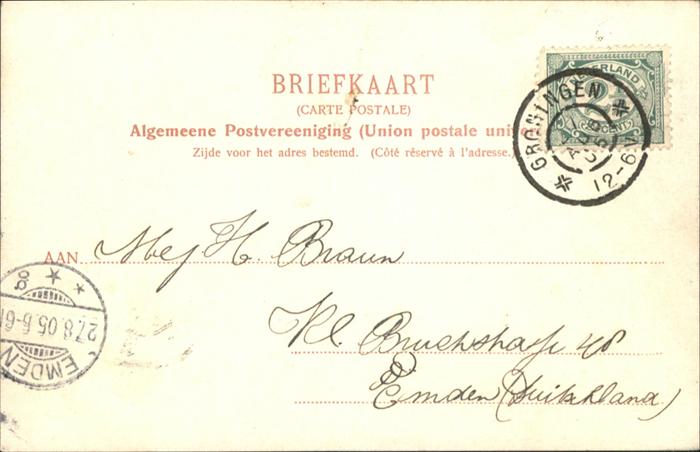 BRIEFKAART
(CARTE POSTALE)
Algemeene Postvereeniging (Union postale univ
Zijde voor het adres bestemd. (Côté réservé à l'adresse.)
NEDERLAND
CENT
GRONINGEN
12-6
AAN Mej H. Braun
Kl. Bruchstraße 48
Emden (Duitschland)
EMDEN
27.8.05.5-6